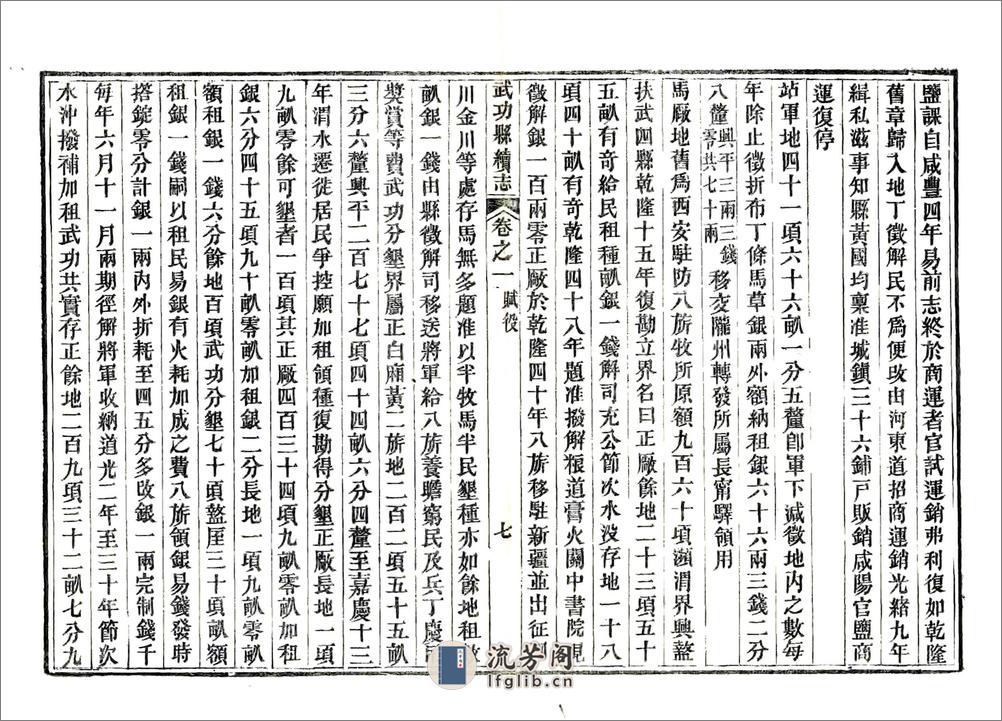 鹽課自咸豐四年易前志終於商運者官試運銷弗利復如乾隆
舊章歸入地丁徵解民不爲便改由河東道招商運銷光緒九年
緝私滋事知縣黃國均稟准城鎮三十六鋪戸販銷咸陽官鹽商
運復停
站軍地四十一項六十六畝一分五釐卽軍下減徵地內之數每
年除止徵折布丁條馬草銀兩外額納租銀六十六兩三錢二分
八釐興平三兩三錢零共七十兩移交隴州轉發所屬長甯驛領用
馬厰地舊爲西安駐防八旂牧所原額九百六十頃瀕渭界興盩
扶武四縣乾隆十五年復勘立界名曰正厰餘地二十三項五十
五畝有奇給民租種畝銀一錢解司充公節次水没存地一十八
項四十畝有奇乾隆四十八年題准撥解糧道膏火關中書院現
徵解銀一百兩零正厰於乾隆四十年八旂移駐新疆並出征
武功縣續志 卷之一 賦役 七
川金川等處存馬無多題准以半牧馬半民墾種亦如餘地租
畝銀一錢由縣徵解司移送將軍給八旂養贍窮民及兵丁慶
獎賞等費武功分墾界屬正白廂黃二旂地二百二項五十五畝
三分六釐興平二百七十七項四十四畝六分四釐至嘉慶十三
年渭水遷徙居民爭控願加租領種復勘得分墾正厰長地一項
九畝零餘可墾者一百項其正厰四百三十四項九畝零畝加租
銀六分四十五項九十畝零畝加租銀二分長地一項九畝零畝
額租銀一錢六分餘地百項武功分墾七十項盩厔三十項畝額
租銀一錢嗣以租民易銀有火耗加成之費八旂領銀易錢發時
搭錠零分計銀一兩內外折耗至四五分多改銀一兩完制錢千
每年六月十一月兩期徑解將軍收納道光二年至三十年節次
水沖撥補加租武功共實存正餘地二百九項三十二畝七分九
流芳阁
lfglib.cn